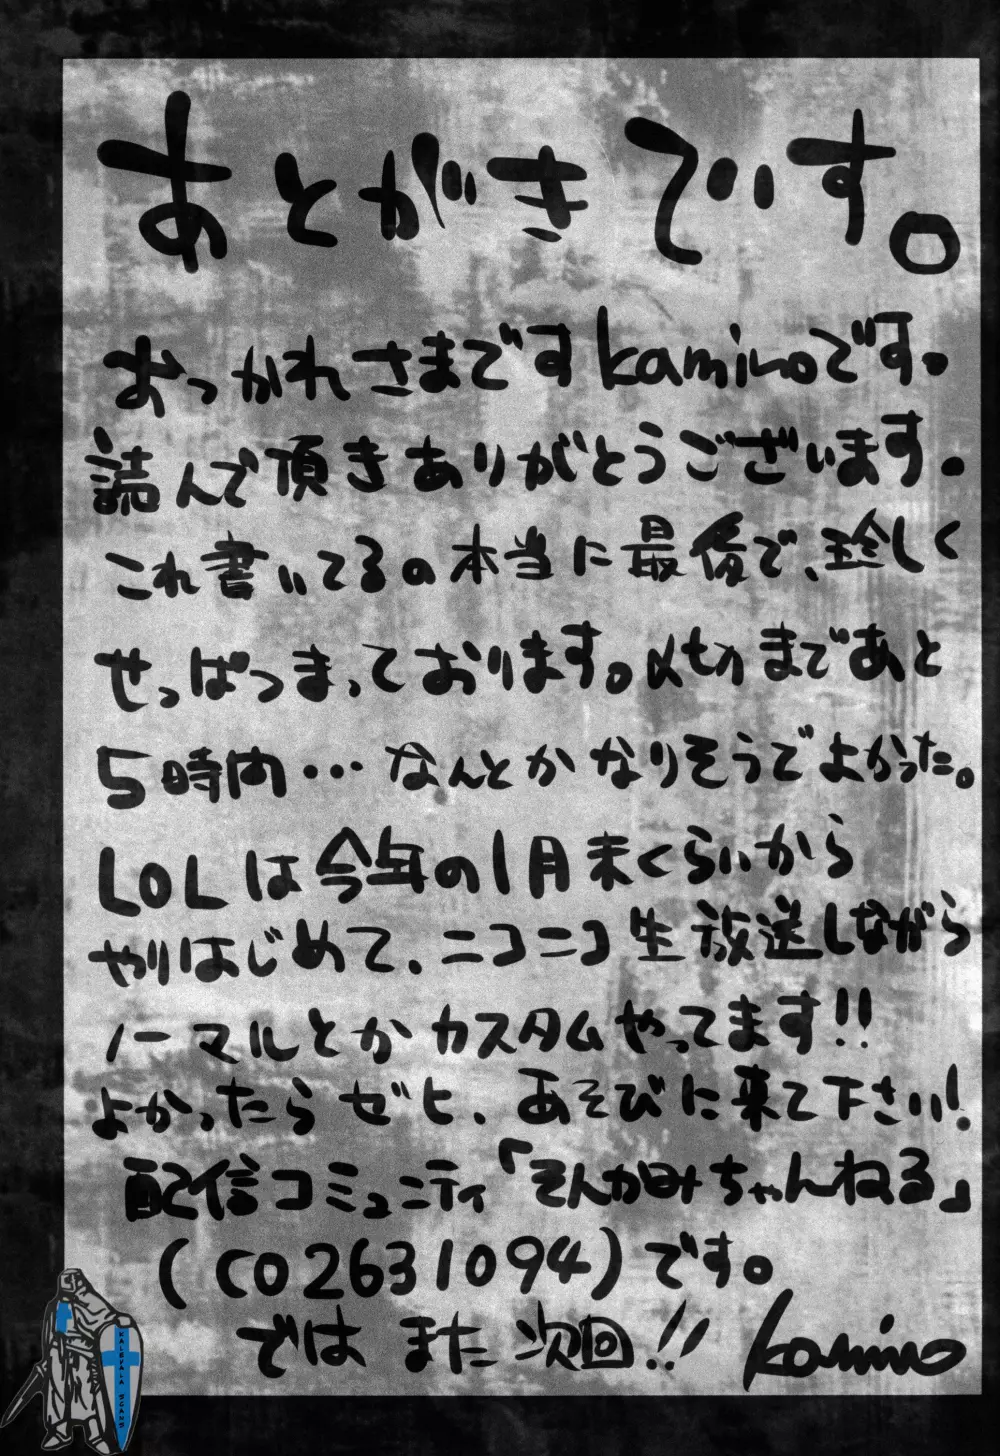 あとがきでいす。
おっかれさまですkaminoです。
読んで頂きありがとうございます。
これ書いてるの本当に最後で、珍しく
せっぱつまっております。〆切まであと
5時間…なんとかなりそうでよかった。
LOLは今年の1月末くらいから
やりはじめて、ニコニコ生放送しながら
ノーマルとかカスタムやってます!!
よかったらぜヒ、あそびに来て下さい!
配信コミュニティ「そんかみちゃんねる」
(co2631094)です。
ではまた次回!! kamino
KALEVALA SCANS